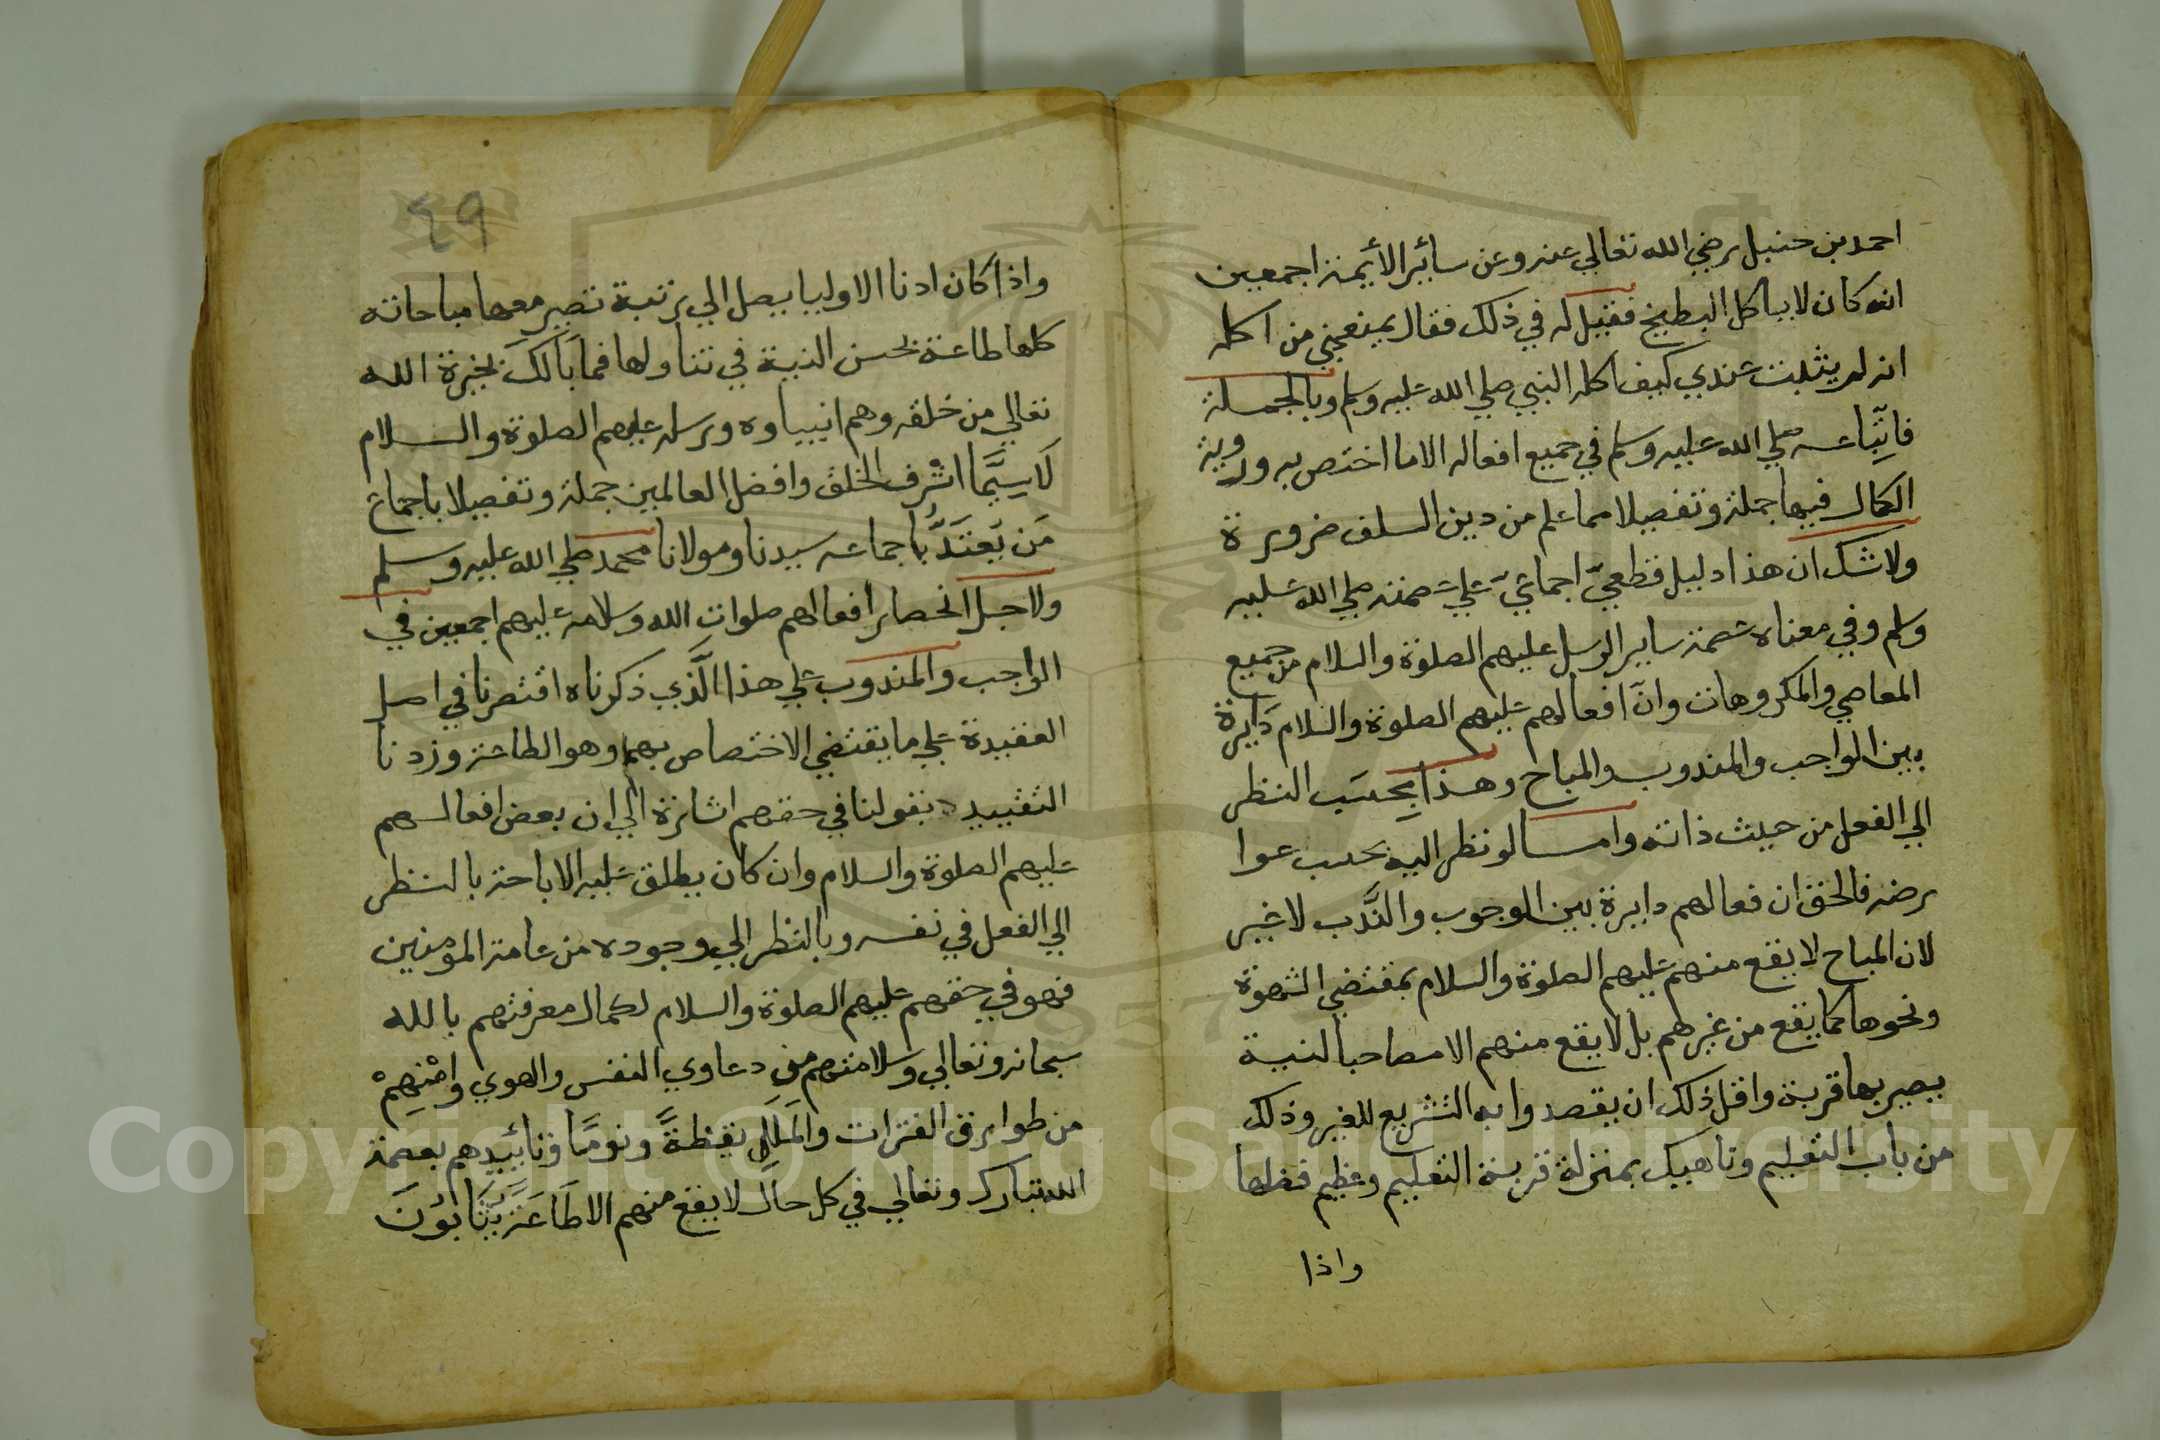 احمد بن حنبل رضي الله تعالي عنه وعن سائير الأئيمة اجمعين
انه كان لا ياكل البطيخ فقيل له في ذلك فقال يمنعني من اكله
انه لم يثبت عندي كيف اكله النبي صلي الله عليه وسلم وبالجملة
فاتِّباعه صلي الله عليه وسلم في جميع افعاله الا ما اختص به ورويۃ
الكمال فيها جملة وتفصيلا مما علم من دين السلف ضرورة
ولا شك ان هذا دليل قطعيّ اجماعيّ علي عصمته صلي الله عليه
وسلم وفي معناه عصمة ساير الرسل عليهم الصلوة والسلام من جميع
المعاصي والمكروهات وانّ افعالهم عليهم الصلوة والسلام دَايرة
بين الواجب والمندوب والمباح وهذا بِحسَب النظر
الي الفعل من حيث ذاته وامــا لو نظر اليه بحسب عوا
رضه فالحق ان فعالهم دايرة بين الوجوب والنَّدب لا غير
لان المباح لا يقع منهم عليهم الصلوة والسلام بمقتضي الشهوة
ونحوها كما يقع من غيرهم بل لا يقع منهم الا مصاحبا لنية
يصير بها قربة واقل ذلك ان يقصدوا به التشريع للغير وذلك
من باب التعليم وناهيك بمنزلة قربة التعليم وعظيم فضلها
واذا
٤٩
واذا كان ادنا الاوليا يصل الي رتبة تصير معها مباحاته
كلها طاعة بحسن النية في تناولها فما بَالكَ بخيرة الله
تعالي من خلقه وهم انبياوه ورسله عليهم الصلوة والسلام
لَاسِيَّما اشْرف الخلق وافضل العالمين جملة وتفصيلا باجماع
مَن يَعتَدُّ باجماعه سيدنا ومولانا محمد صلي الله عليه وسلم
ولاجل انحصار افعالهم صلوات الله وسلامه عليهم اجمعين في
الواجب والمندوب علي هذا الَّذي ذكرناه اقتصرنا في اصل
العقيدة علي ما يقتضي الاختصاص بهما وهو الطاعة وزدنا
التقييد بقولنا في حقهم اشارة الي ان بعض افعالهم
عليهم الصلوة والسلام وان كان يطلق عليه الاباحة بالنظر
الي الفعل في نفسه وبالنظر الي وجوده من عامة المومنين
فهو في حقهم عليهم الصلوة والسلام لكمال معرفتهم بالله
سبحانه وتعالي وسلامتهم من دعاوي النفس والهوي وامْنِهِمْ
من طوارق الفترات والمَلَلِ يقظةً ونومًا وتائييدهم بعصمة
الله تبارك وتعالي في كل حال لا يقع منهم الا طَاعَة يُثَابُونَ